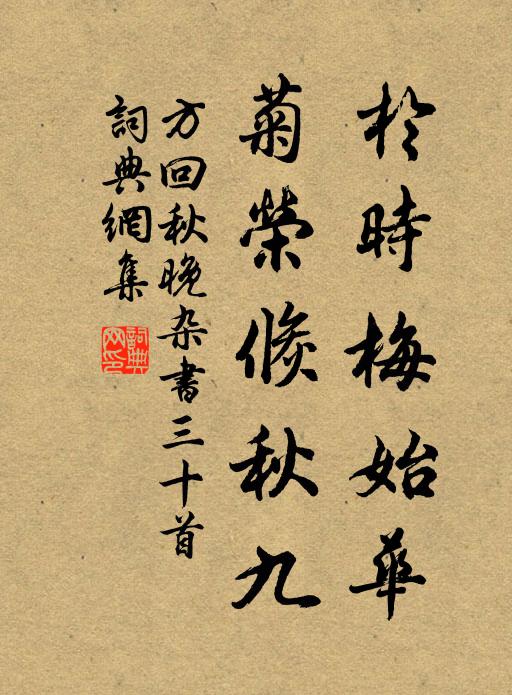 於時梅始華
菊榮倏秋九
方回秋晚杂書三十首
詞典網集
詞典網印